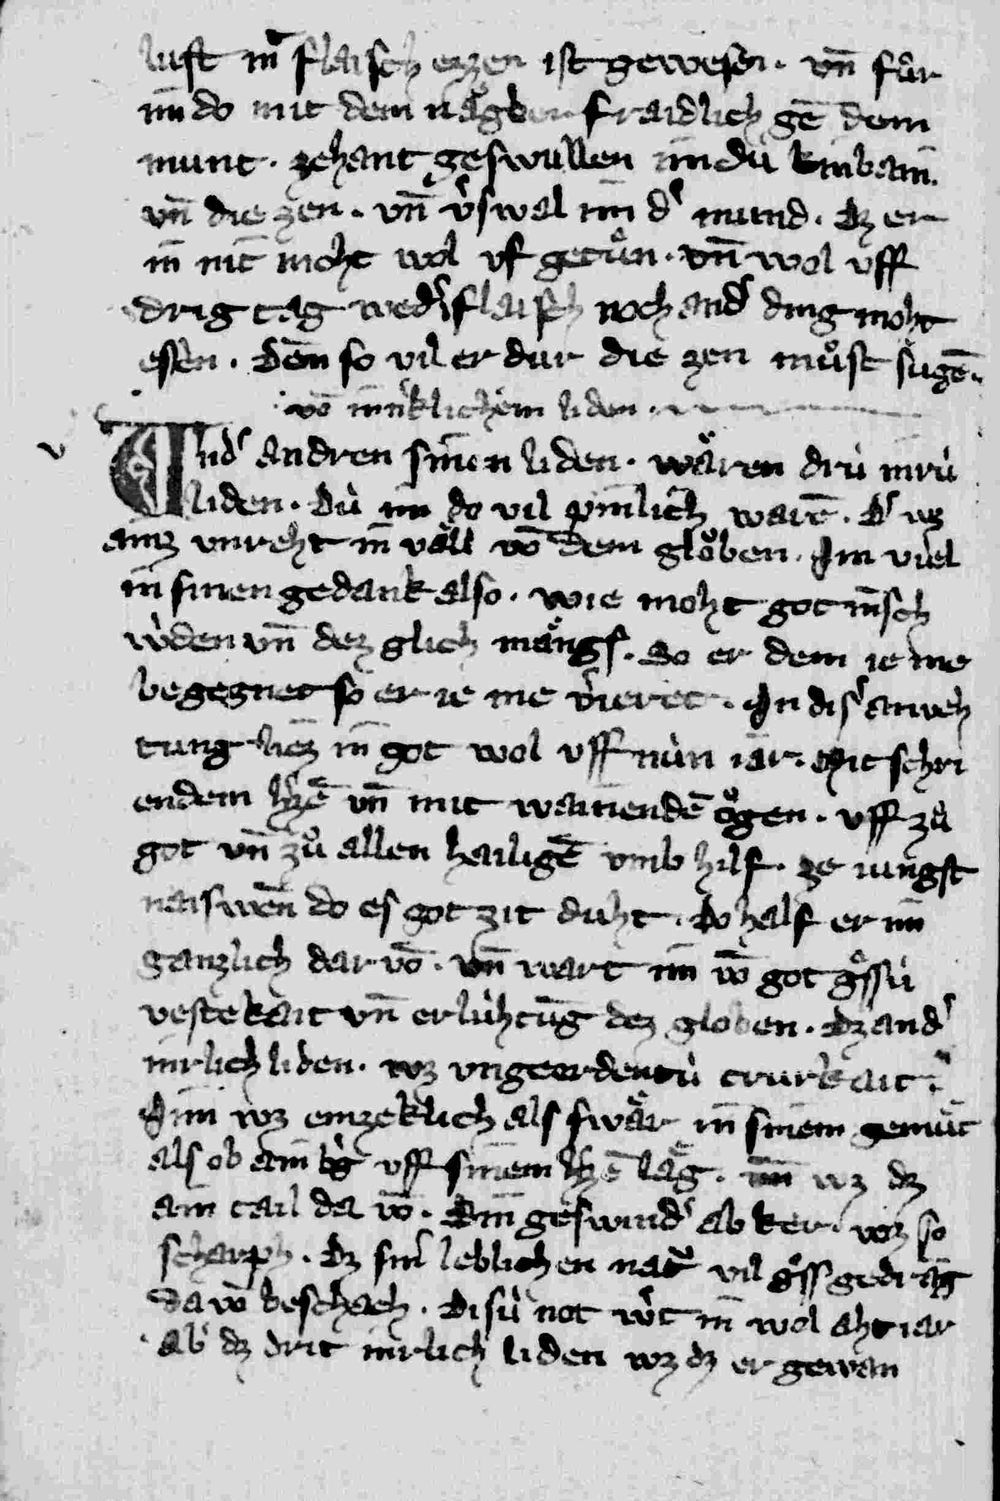 luft in flaisch eczen ist geweſen · vn̄ fuͦr
im do mit dem naͤgber fraidlich gē dem
munt · zehant geſwullen im dú kinbain ·
vn̄ die zen · vn̄ v̓ſwal im d̓ mund · dz er
in nit moht wol vf getuͦn · vn̄ wol vff
drig tag wed̓ flaiſch noch and̓ ding moht
eſſen · Den̄ ſo vil er dur die zen muͦſt ſugē ·
vō inn̓klichem liden ·
Und̓ andren ſinen liden · waͤren drú inrú
liden · dú im do vil pinlich warē · d̓ wz
ainz vnreht in vaͤll vō dem gloͮben · Im viel
in ſinen gedank alſo · wie moht got mēſch
w̓den vn̄ dez glich maͤngſ · So er dem ie me
begegnet ſo er ie me v̓ieret · In diſ̓ anveh
tung liez in got wol vff nún iar · mit ſchri
endem h̓zē vn̄ mit wainendē oͮgen · vff zuͦ
got vn̄ zuͦ allen hailigē vmb hilf · ze iungſt
naiſwen̄ do eſ got zit duht · do half er im
ganzlich dar vō · vn̄ wart im vō got gͦſſú
veſtekait vn̄ erlúhtūg dez globen · dz and̓
inrlich liden · wz vngeordentú trurkait ·
Im wz emzeklich alſ ſwaͤr in ſinem gemuͤt
alſ ob ain b̓g vff ſinem h̓zē laͤg · im wz dz
ain tail da vō · Sin geſwind̓ ab ker · wz ſo
ſcharph · dz ſin̓ leblichen nat̓ vil gͦſſ gedrāg
da vō beſchach · diſú not w̓t in wol aht iar
ab̓ dz drit inrlich liden wz dz er gewan